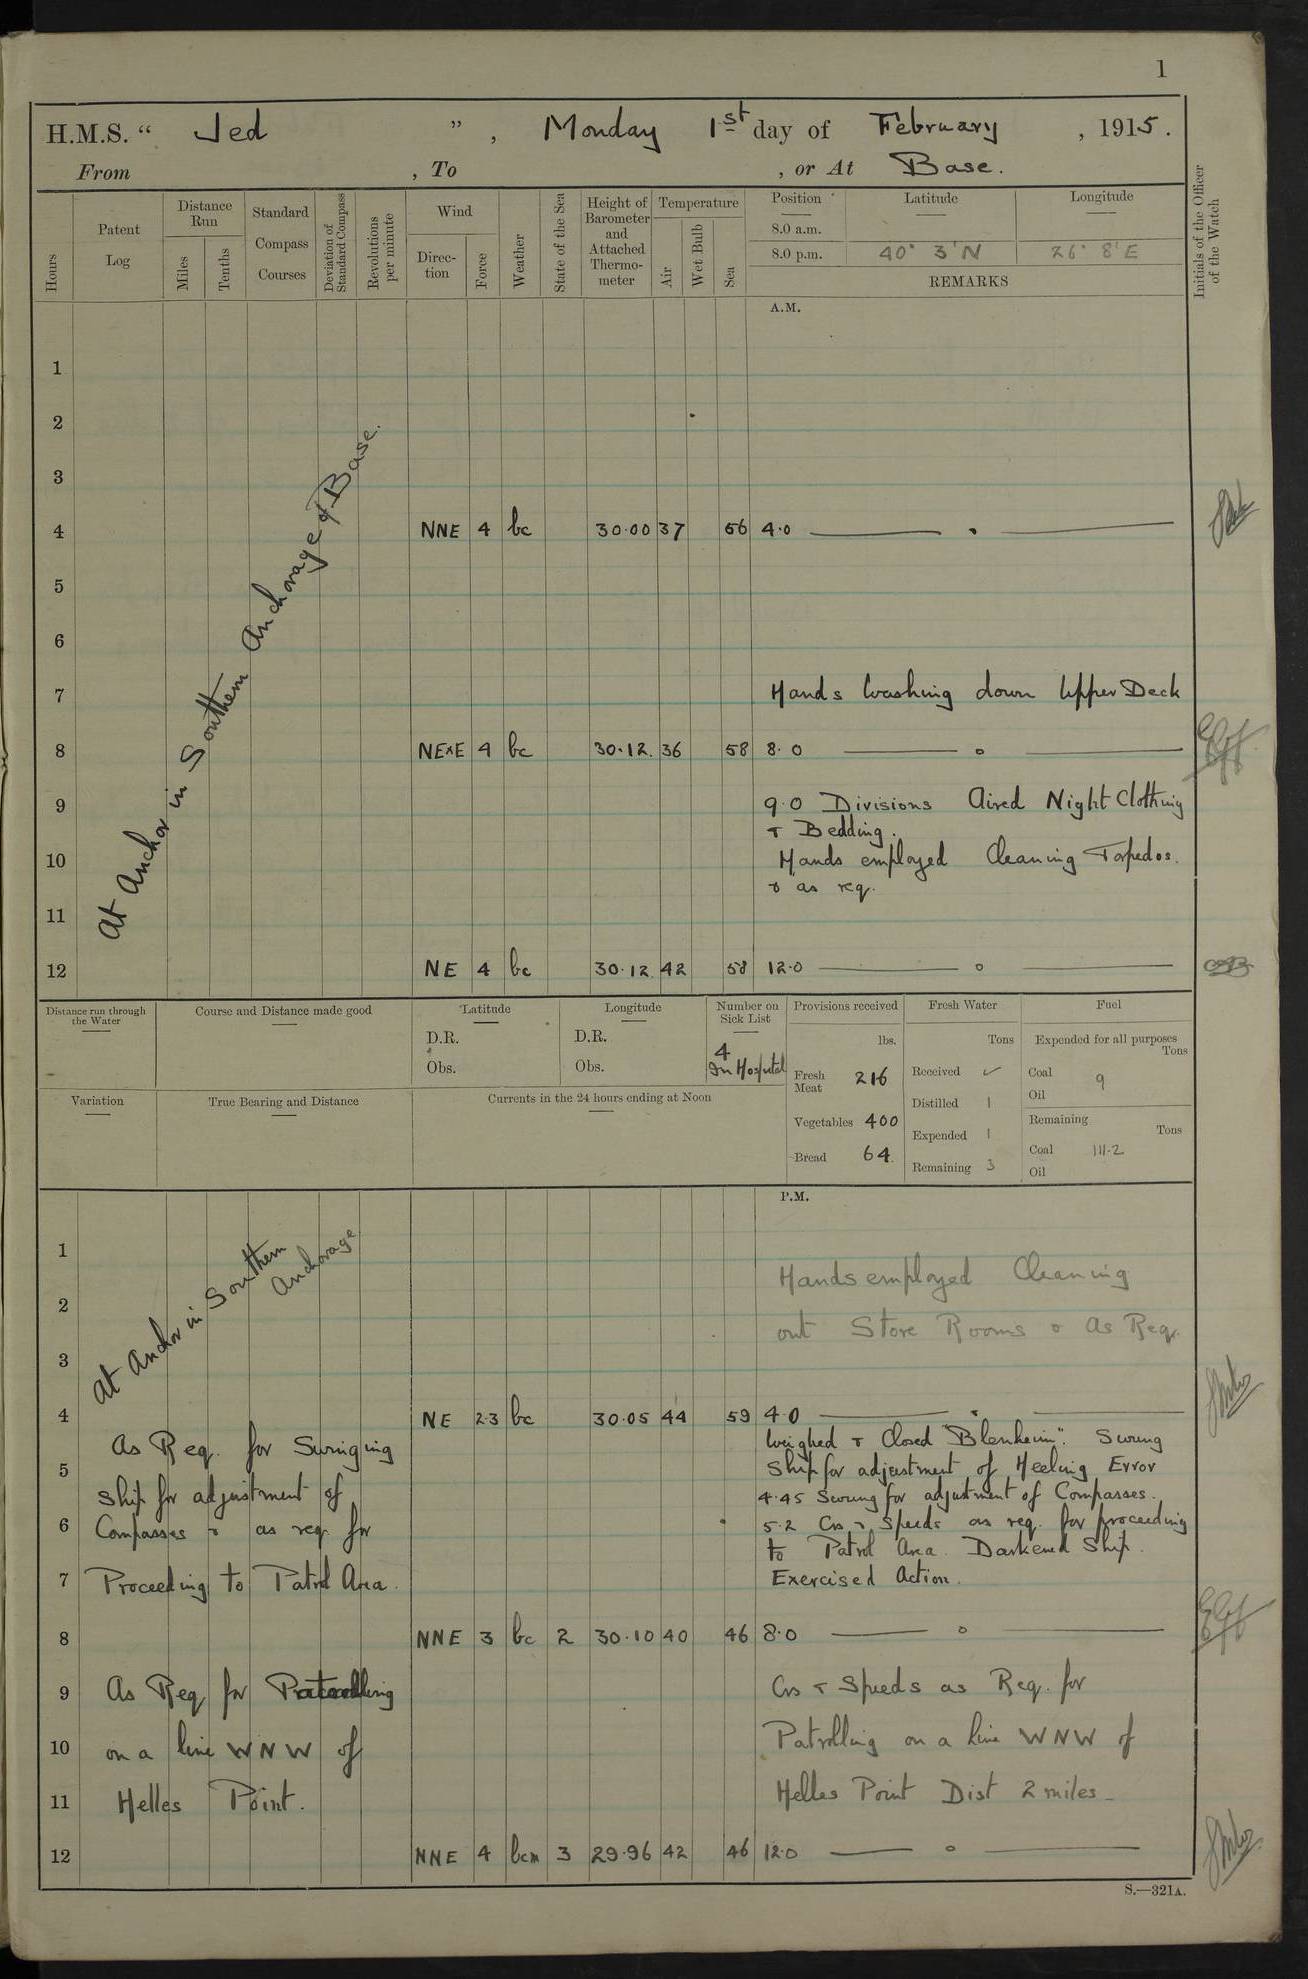 1
H.M.S. “ Jed ” , Monday 1st day of February , 1915.
From , To , or At Base.
Hours
Patent Log
Distance Run
Miles
Tenths
Standard Compass Courses
Deviation of Standard Compass
Revolutions per minute
Wind
Direc-tion
Force
Weather
State of the Sea
Height of Barometer and Attached Thermo-meter
Temperature
Air
Wet Bulb
Sea
Position Latitude Longitude
8.0 a.m.
8.0 p.m. 40° 3' N 26° 8' E
REMARKS
Initials of the Officer of the Watch
A.M.
At Anchor in Southern Anchorage of Base.
1
2
3
4 NNE 4 bc 30.00 37 56 4.0
5
6
7 Hands Washing down Upper Deck
8 NExE 4 bc 30.12. 36 58 8.0
9 9.0 Divisions Aired Night Clothing
& Bedding.
10 Hands employed Cleaning Torpedos.
& as req.
11
12 NE 4 bc 30.12 42 58 12.0
Distance run through the Water
Course and Distance made good
Latitude
D.R.
Obs.
Longitude
D.R.
Obs.
Number on Sick List
4
In Hospital
Provisions received
lbs.
Fresh Meat 216
Vegetables 400
Bread 64.
Fresh Water
Tons
Received ✓
Distilled 1
Expended 1
Remaining 3
Fuel
Expended for all purposes
Tons
Coal 9
Oil
Remaining
Tons
Coal 111.2
Oil
Variation
True Bearing and Distance
Currents in the 24 hours ending at Noon
P.M.
At Anchor in Southern
Anchorage
1 Hands employed Cleaning
2 out Store Rooms & As Req.
3
4 NE 2.3 bc 30.05 44 59 4.0
Weighed & Closed "Blenheim". Swung
Ship for adjustment of Heeling Error
4.45 Swung for adjustment of Compasses.
5.2 Cos & Speeds as req. for proceeding
to Patrol Area. Darkened Ship.
Exercised Action.
As Req. for Swinging
5 Ship for adjustment of
6 Compasses & as req for
7 Proceeding to Patrol Area.
8 NNE 3 bc 2 30.10 40 46 8.0
9 As Req for Patrolling
10 on a line WNW of
11 Helles Point.
Cos & Speeds as Req. for
Patrolling on a line WNW of
Helles Point Dist 2 miles
12 NNE 4 bcm 3 29.96 42 46 12.0
S.—321A.